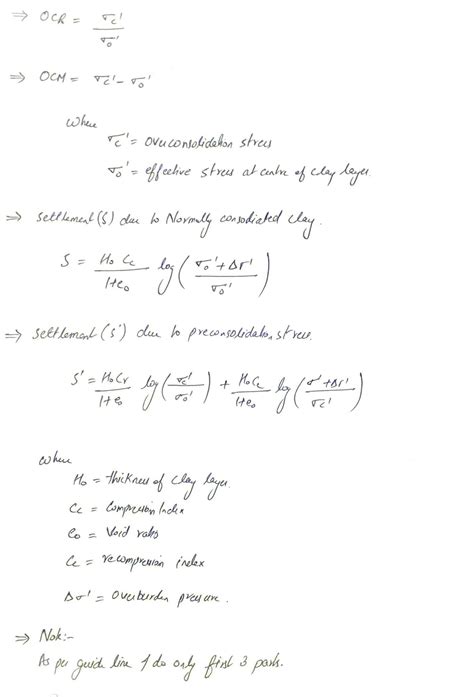 ⇒ OCR = σc'/σo'
⇒ OCM = σc' - σo'
where
σc' = overconsolidation stress
σo' = effective stress at centre of clay layer.
⇒ settlement (S) due to Normally consodiated clay.
S = Ho Cc/1+eo log(σo' + Δσ'/σo')
⇒ settlement (S') due to preconsolidation stress.
S' = HoCr/1+eo log(σc'/σo') + HoCc/1+eo log(σ' + Δσ'/σc')
where
Ho = thickness of clay layer.
Cc = Compression Index
eo = Void ratio
Cc = recompression index
Δσ' = Overburden pressure.
⇒ Note:-
As per guide line I do only first 3 parts.